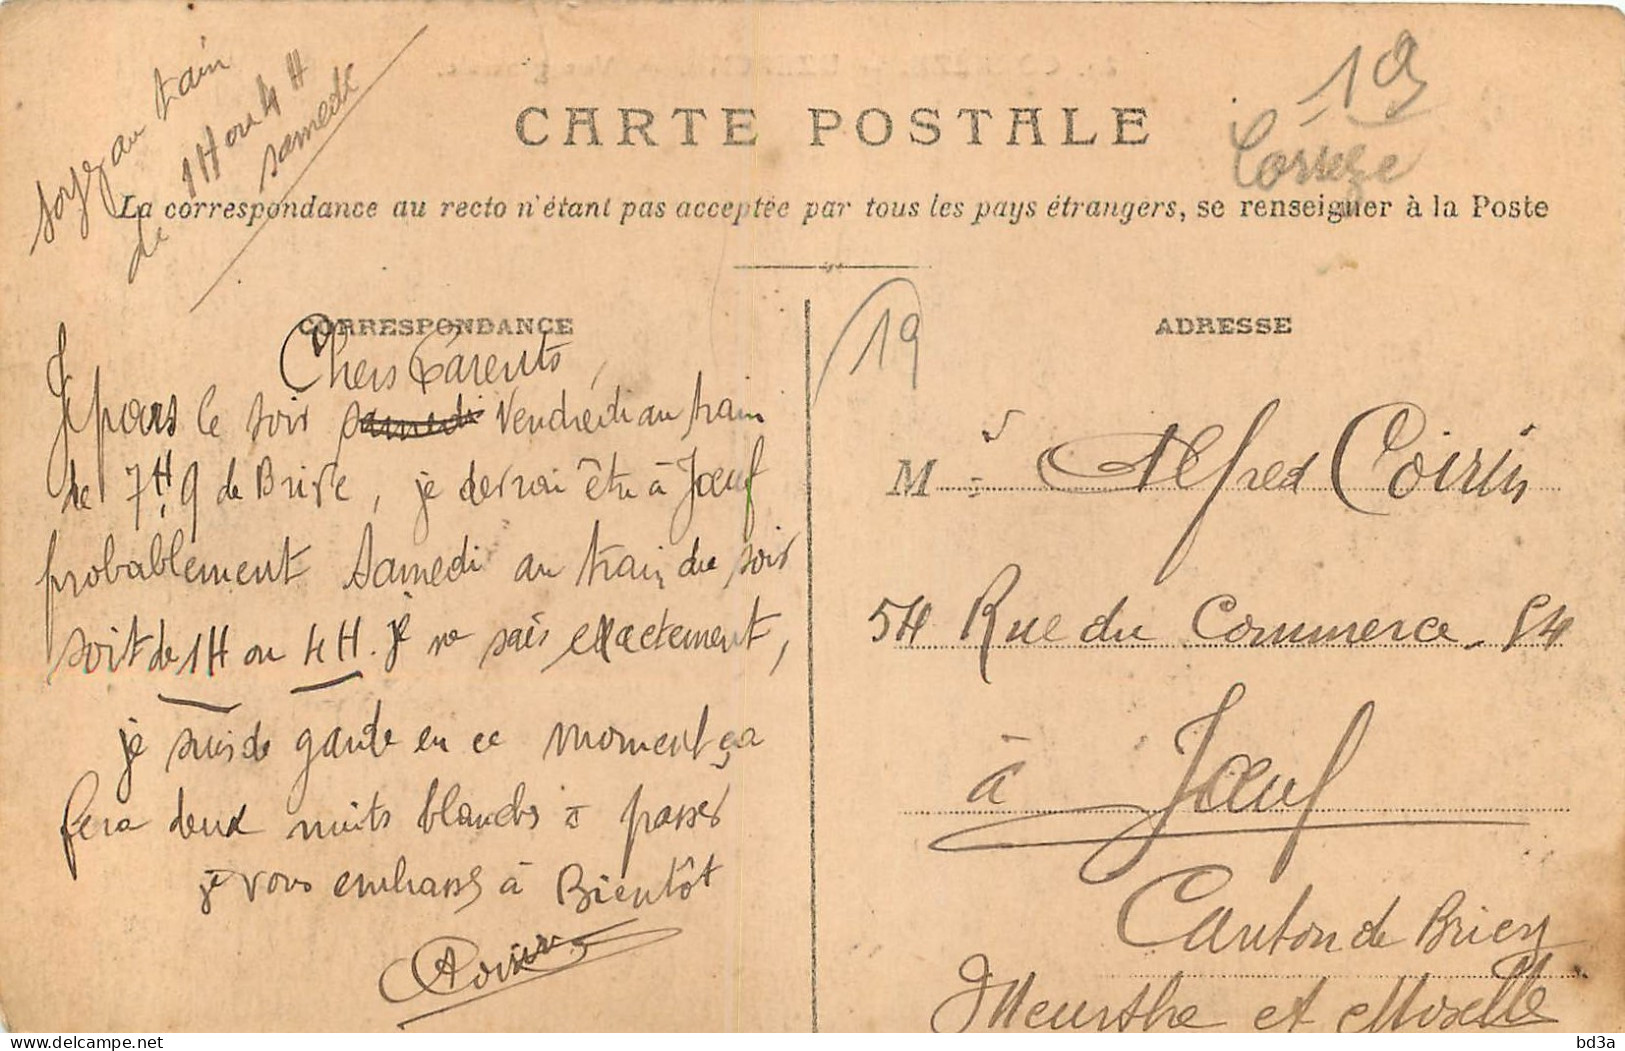 soyez au train
de 1H ou 4H
samedi
19
Corrèze
CARTE POSTALE
La correspondance au recto n'étant pas acceptée par tous les pays étrangers, se renseigner à la Poste
CORRESPONDANCE
Chers Parents,
Je pars le soir samedi Vendredi au train
de 7H,9 de Brive, je devrai être à Jœuf
probablement Samedi au train du soir
soit de 1H ou 4H. je ne sais exactement,
je suis de garde en ce moment ça
fera deux nuits blanches à passer
je vous embrasse à Bientôt
19
ADRESSE
M Alfred Coirin
54 Rue du Commerce. 54
à Jœuf
Canton de Briey
Meurthe et Moselle
bd3a